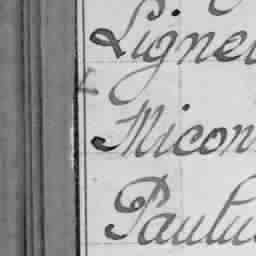 Ligne
Micon
Paulu